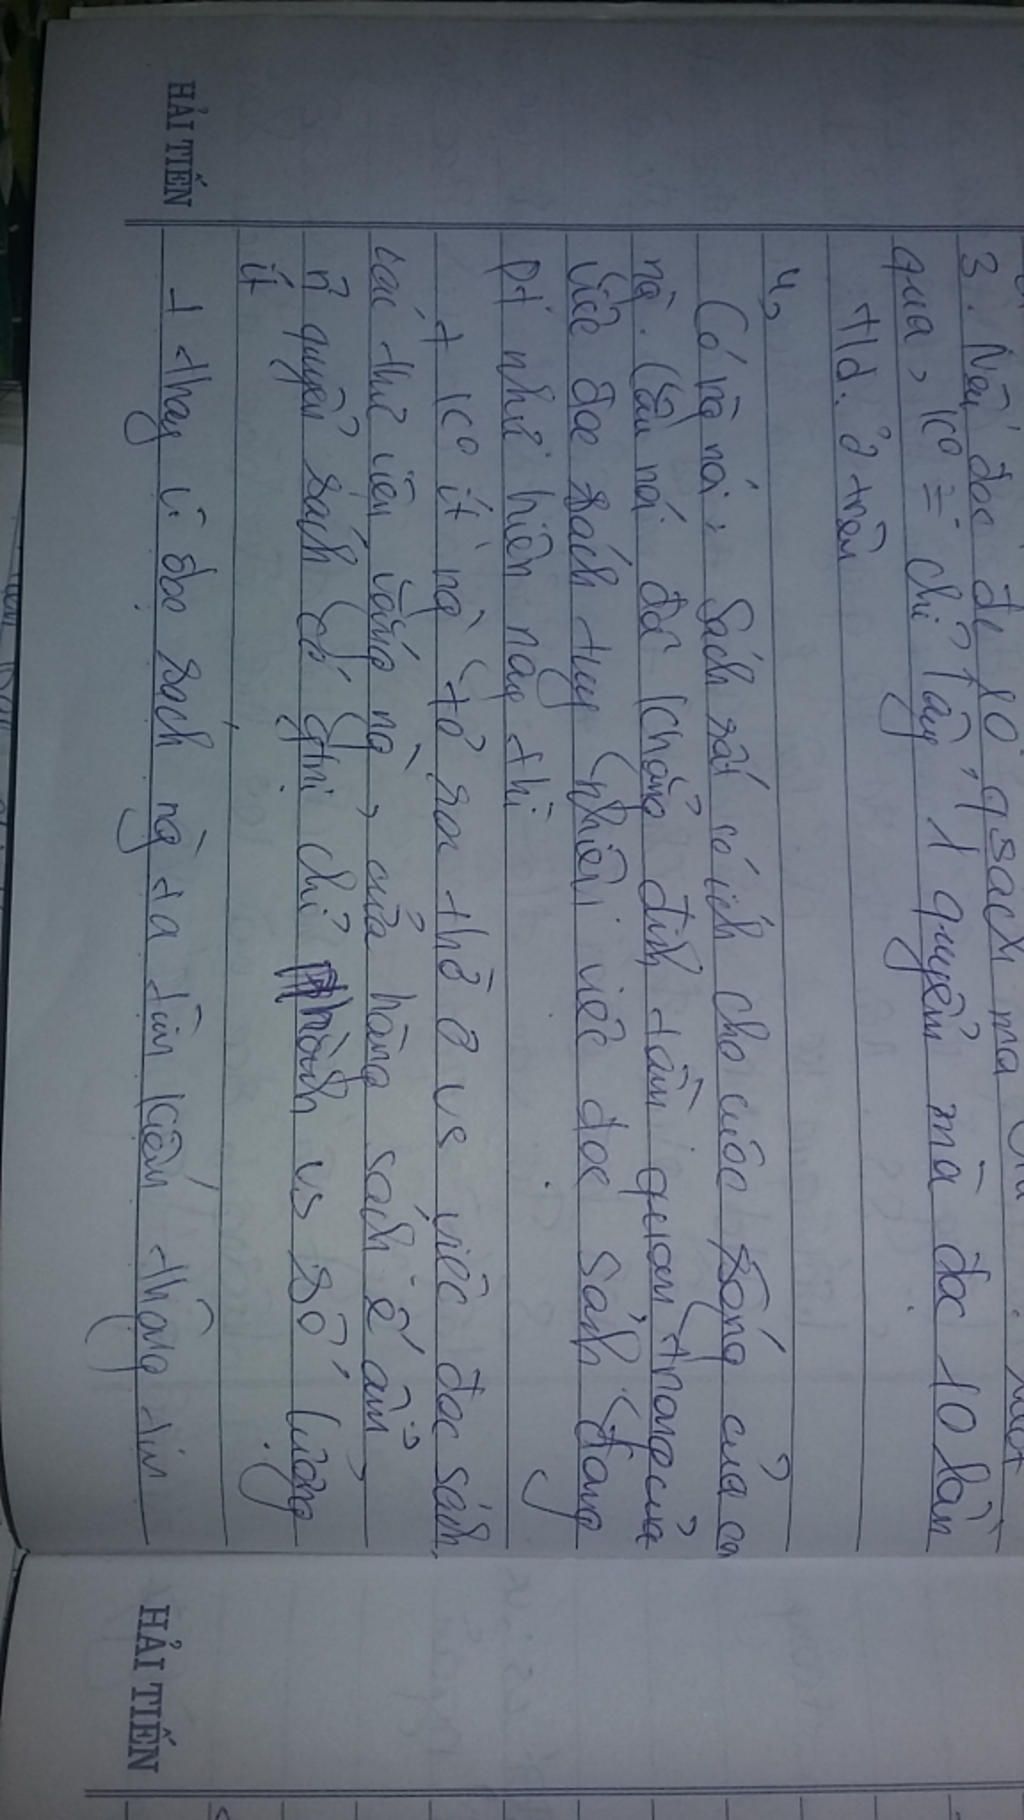 3. Nếu đọc đc 10 q sách mà
qua, ko = chỉ lấy 1 quyển mà đọc 10 lần
Hd. ở trên
4,
Có ng nói: Sách rất có ích cho cuộc sống của con
ng. Câu nói đó khẳng định tầm quan trọng của
việc đọc sách tuy nhiên việc đọc sách đang
pt như hiện nay thì
+ ko ít ng tỏ ra thờ ơ vs việc đọc sách,
các thư viện vắng ng, cửa hàng sách ế ẩm,
n quyển sách có ghi chỉ hành vs số lượng
ít
+ thay vì đọc sách ng ta tìm kiếm thông tin
HẢI TIẾN
HẢI TIẾN